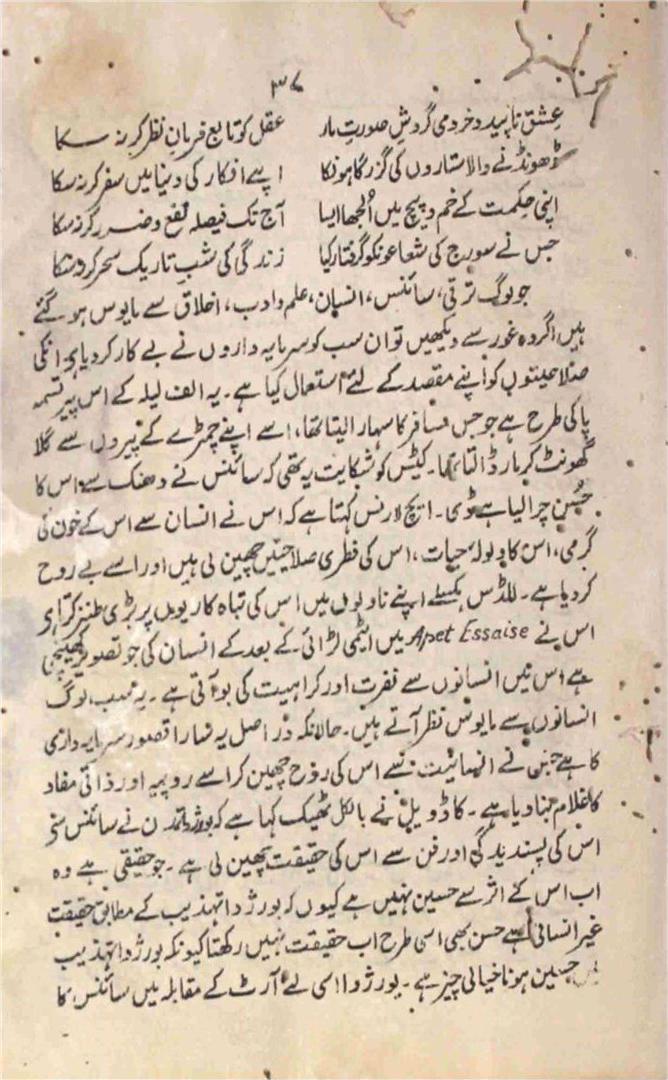 ۳۷
عشق ناپید و خرد می گردش صورت مار    عقل کو تابع فرمانِ نظر کر نہ سکا
ڈھونڈنے والا ستاروں کی گزرگاہونکا    اپنے افکار کی دنیا میں سفر کر نہ سکا
اپنی حکمت کے خم و پیچ میں اُلجھا ایسا    آج تک فیصلہ نفع و ضرر کر نہ سکا
جس نے سورج کی شعاعونکو گرفتار کیا    زندگی کی شبِ تاریک سحر کر نہ سکا
جو لوگ ترقی، سائنس، انسان، علم و ادب، اخلاق سے مایوس ہو گئے
ہیں اگر وہ غور سے دیکھیں تو ان سب کو سرمایہ داروں نے بے کار کر دیا ہے انکی
صلاحیتوں کو اپنے مقصد کے لئے استعمال کیا ہے۔ یہ الف لیلہ کے اس پیر تسمہ
پا کی طرح ہے جو جس مسافر کا سہارا لیتا تھا، اسے اپنے چمڑے کے پیروں سے گلا
گھونٹ کر مار ڈالتا تھا۔ کیٹس کو شکایت یہ تھی کہ سائنس نے دھنک سے اس کا
حُسن چرا لیا ہے ڈی۔ ایچ لارنس کہتا ہے کہ اس نے انسان سے اس کے خون کی
گرمی، اس کا ولولۂ حیات، اس کی فطری صلاحیتیں چھین لی ہیں اور اسے بے روح
کر دیا ہے۔ للڈس ہکسلے اپنے ناولوں میں اس کی تباہ کاریوں پر بڑی طنز کرتا ہے
اس نے Apet Essaise میں ایٹمی لڑائی کے بعد کے انسان کی جو تصویر کھینچی
ہے اس میں انسانوں سے نفرت اور کراہیت کی بو آتی ہے۔ یہ سب لوگ
انسانوں سے مایوس نظر آتے ہیں۔ حالانکہ در اصل یہ سارا قصور سرمایہ داری
کا ہے جس نے انسانیت سے اس کی روح چھین کر اسے روپیہ اور ذاتی مفاد
کا غلام بنا دیا ہے۔ کاڈویل نے بالکل ٹھیک کہا ہے کہ بورژوا تمدن نے سائنس سے
اس کی پسندیدگی اور فن سے اس کی حقیقت چھین لی ہے۔ جو حقیقی ہے وہ
اب اس کے اثر سے حسین نہیں ہے کیوں کہ بورژوا تہذیب کے مطابق حقیقت
غیر انسانی ہے حسن بھی اسی طرح اب حقیقت نہیں رکھتا کیونکہ بورژوا تہذیب
میں حسین ہونا خیالی چیز ہے۔ بورژوا اسی لئے آرٹ کے مقابلہ میں سائنس کا